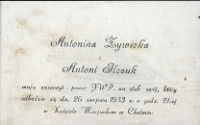 Antonina Żywicka
Antoni
mają zaszczyt prosić JWP. na ślub swój, który
odbędzie się dn. 26 sierpnia 1933 r. o godz.
w Kościele Marjackim w Chełmie.